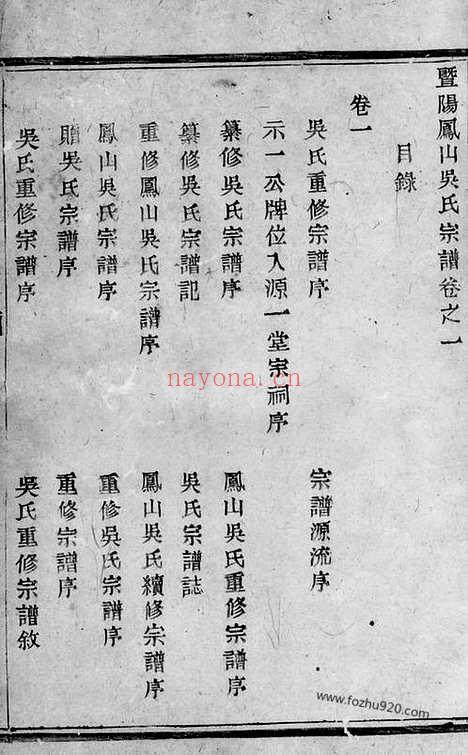 暨陽鳳山吳氏宗譜卷之一
目錄
卷一
吳氏重修宗譜序
宗譜源流序
示一公牌位入源一堂宗祠序
纂修吳氏宗譜序
鳳山吳氏重修宗譜序
纂修吳氏宗譜記
吳氏宗譜誌
重修鳳山吳氏宗譜序
鳳山吳氏續修宗譜序
鳳山吳氏宗譜序
重修吳氏宗譜序
贈吳氏宗譜序
重修宗譜序
吳氏重修宗譜序
吳氏重修宗譜敘
nayona.cn
www.fozhu920.com